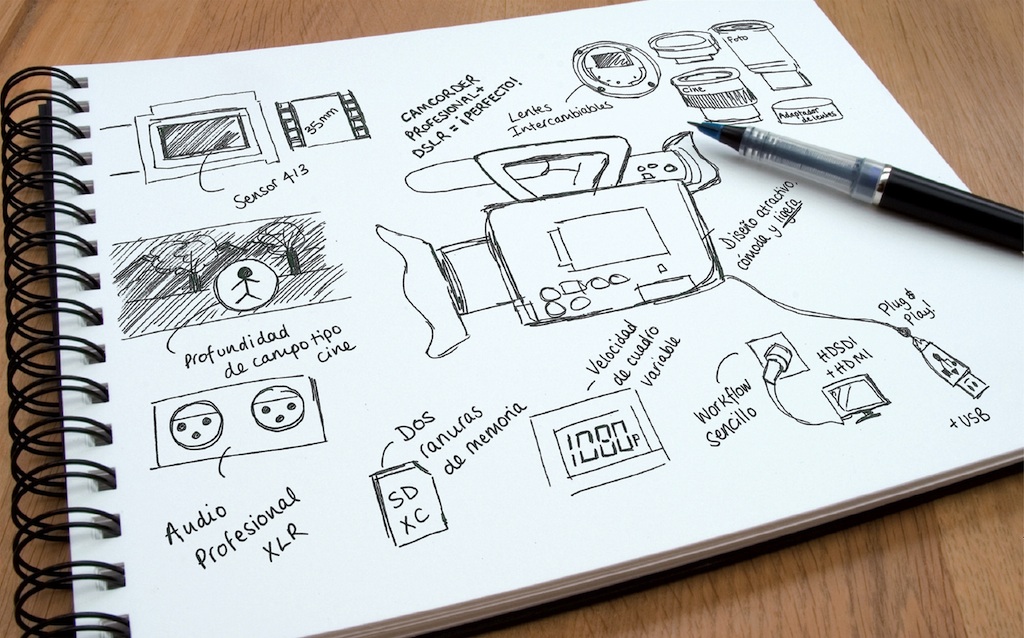 Sensor 4/3
35mm
CAMCORDER
PROFESIONAL+
DSLR = ¡PERFECTO!
Lentes
Intercambiables
Foto
Cine
Adaptador
de lentes
Diseño atractivo,
cómoda y ligera
Profundidad
de campo tipo
cine
Audio
Profesional
XLR
Dos
ranuras
de memoria
SD
XC
Velocidad
de cuadro
variable
1080P
Workflow
sencillo
HDSDI
+ HDMI
Plug &
Play!
+ USB